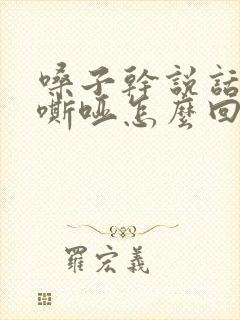 嗓子幹說話
嘶啞怎麼回
羅宏義